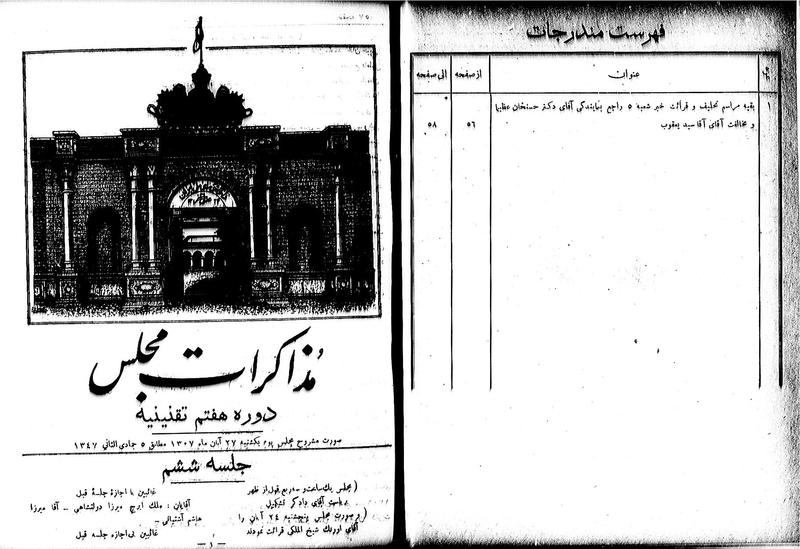 فهرست مندرجات
عنوان از صفحه الی صفحه
۱ بقیه مراسم تحلیف و قرائت خبر شعبه ۵ راجع بنمایندگی آقای دکتر حسنخان عظیما
و مخالفت آقای آقا سید یعقوب ۵۶ ۵۸
مذاکرات مجلس
دوره هفتم تقنینیه
صورت مشروح مجلس یوم یکشنبه ۲۷ آبان ماه ۱۳۰۷ مطابق ۵ جمادی الثانی ۱۳۴۷
جلسه ششم
(مجلس یک ساعت و سه ربع قبل از ظهر
بریاست آقای دادگر تشکیل
(و صورت مجلس پنجشنبه ۲۴ آبان را
آقای اورنگ شیخ الملکی قرائت نمودند
غائبین با اجازه جلسهٔ قبل
آقایان : ملک ایرج میرزا دولتشاهی - آقا میرزا
هاشم آشتیانی -
غائبین بی اجازه جلسه قبل
- ۱ -